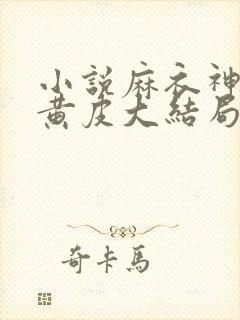 小說麻衣神
黄皮大結局
奇卡馬